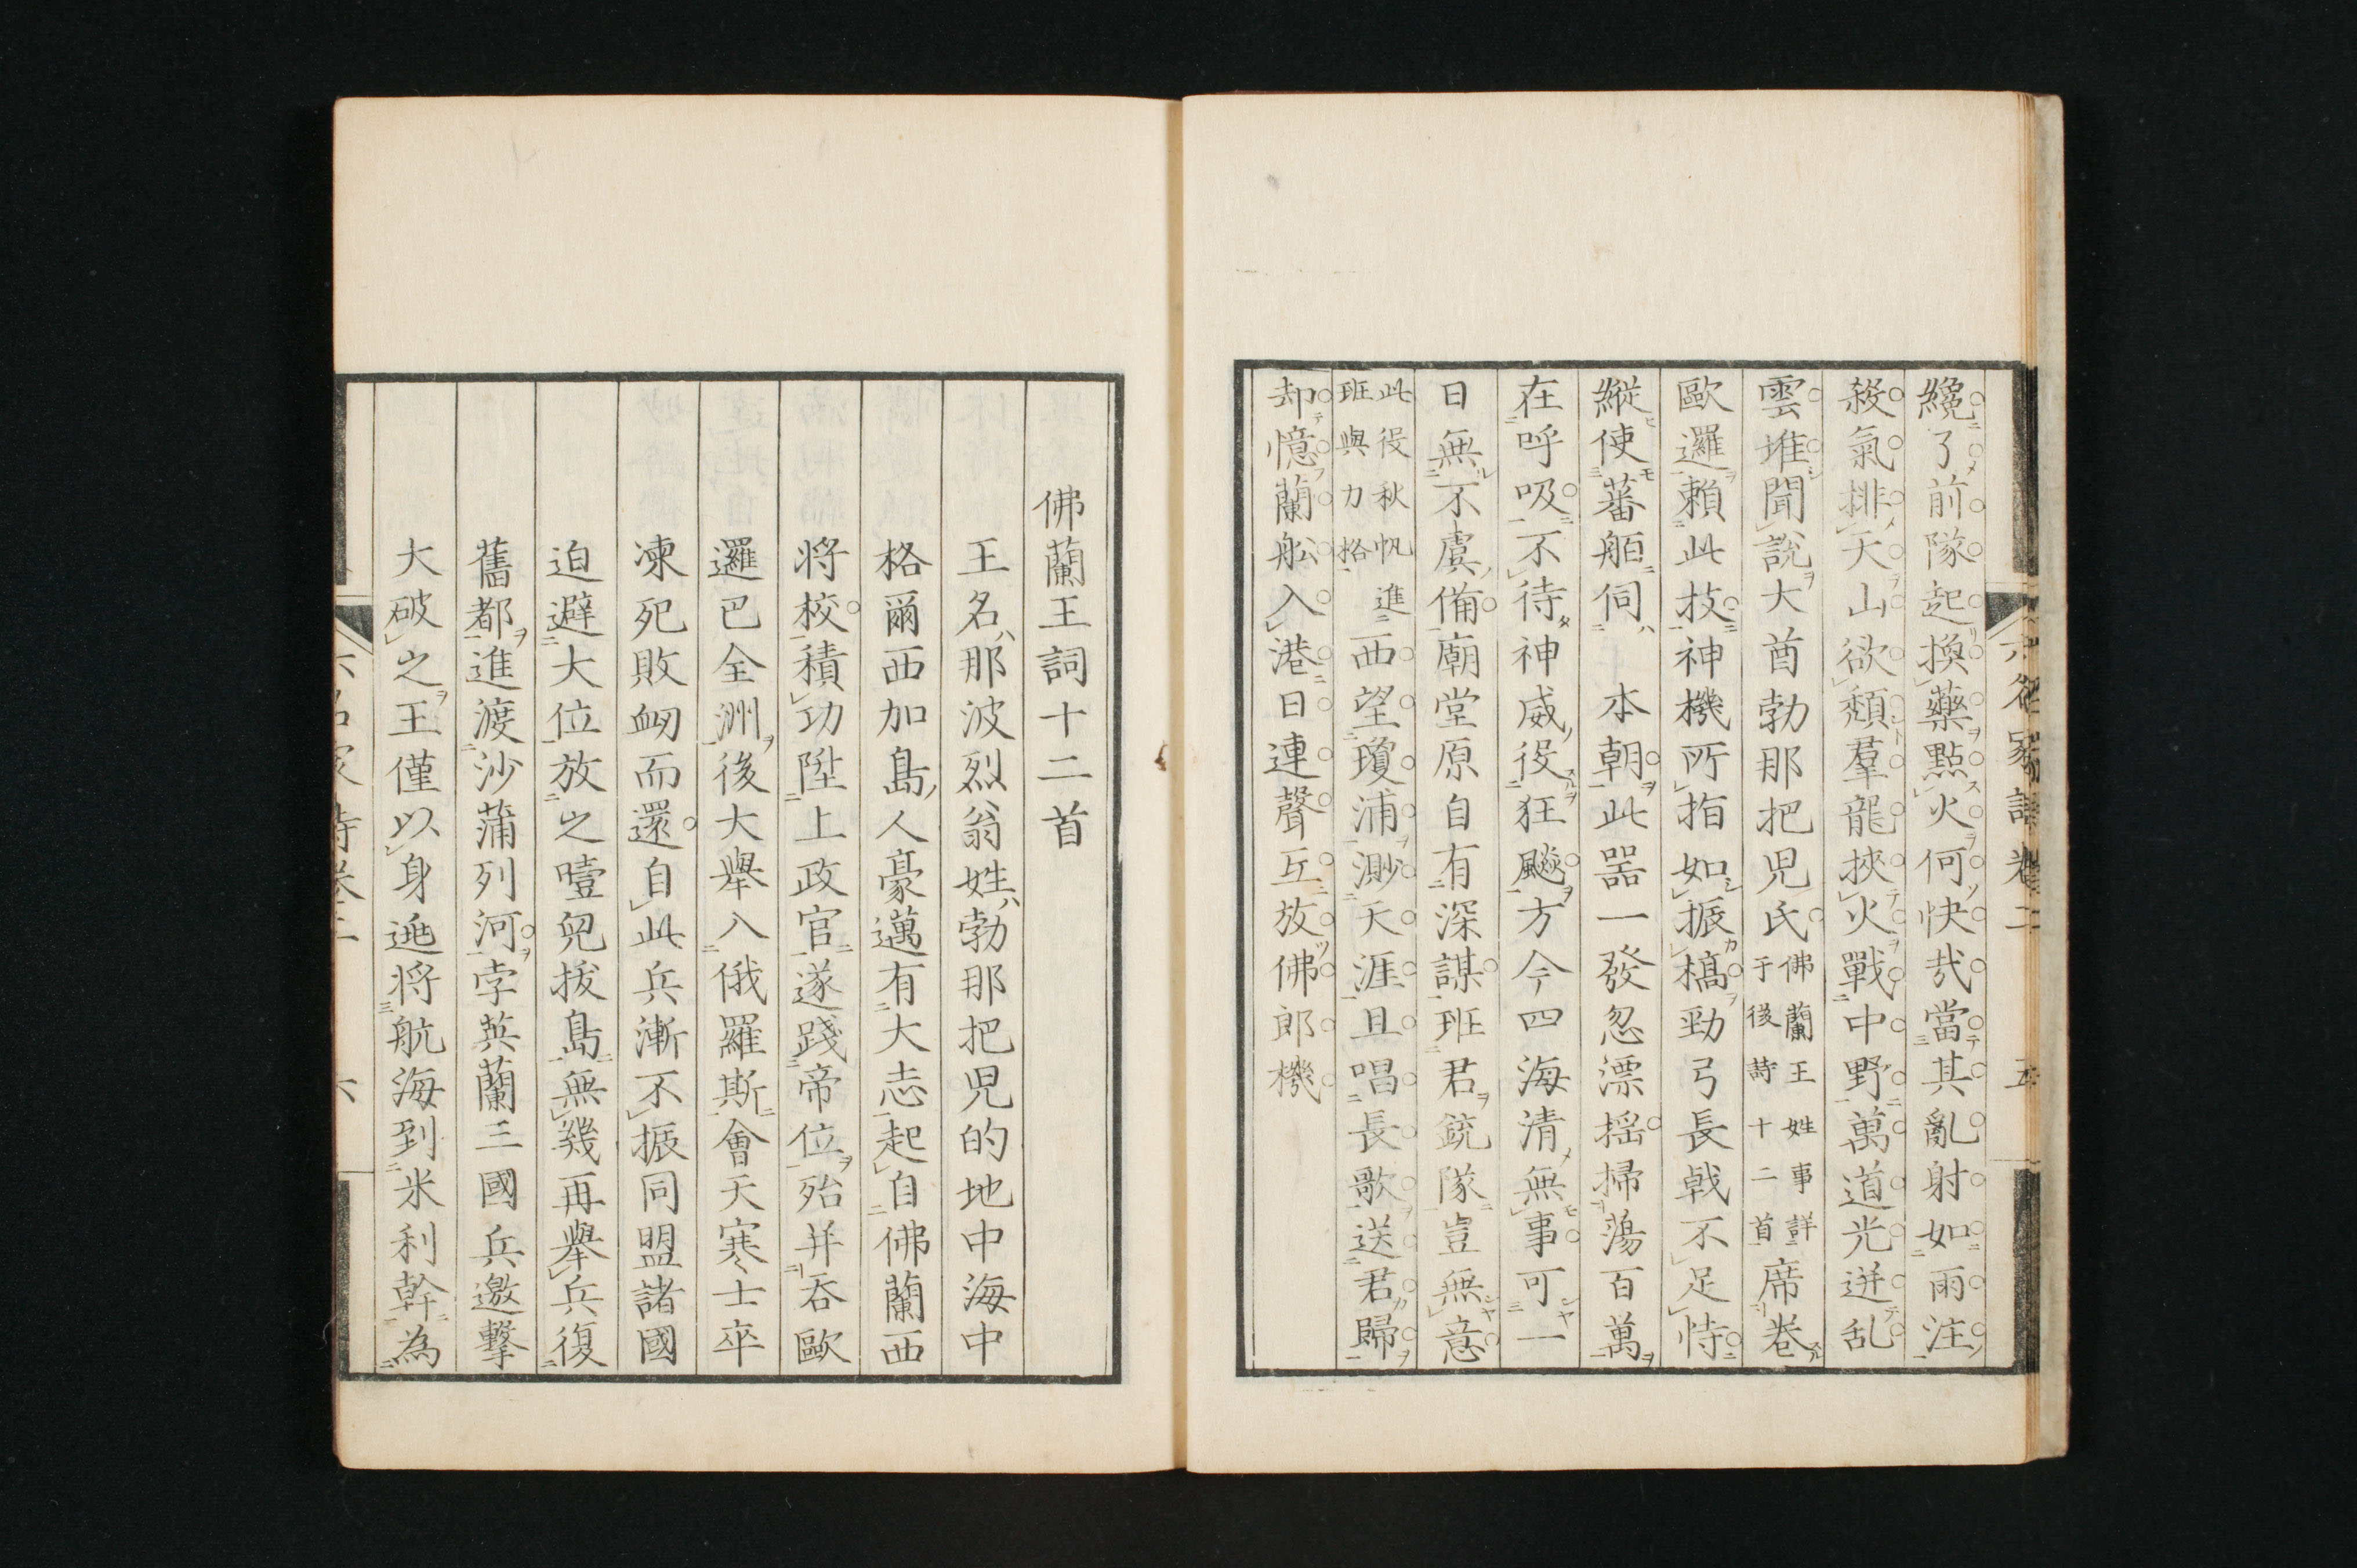 纔了前隊起換藥點火何快哉當其亂射如雨注
殺氣排天山欲頽羣龍挾火戰中野萬道光迸乱
雲堆聞說大酋勃那把児氏佛蘭王姓事詳于後詩十二首席卷
歐邏賴此技神機所指如振槁勁弓長戟不足恃
縱使蕃舶伺 本朝此噐一發忽漂揺掃蕩百萬
在呼吸不待神威役狂颷方今四海清無事可一
日無不虞備廟堂原自有深謀班君銃隊豈無意
此役秋帆進班與力格西望瓊浦渺天涯且唱長歌送君歸
却憶蘭舩入港日連聲互放佛郎機
佛蘭王詞十二首
王名那波烈翁姓勃那把児的地中海中
格爾西加島人豪邁有大志起自佛蘭西
将校積功陞上政官遂踐帝位殆并吞歐
邏巴全洲後大舉入俄羅斯會天寒士卒
凍死敗衂而還自此兵漸不振同盟諸國
迫避大位放之噎兒拔島無幾再舉兵復
舊都進渡沙蒲列河孛英蘭三國兵邀擊
大破之王僅以身逃将航海到米利幹為
六名家詩卷二 六